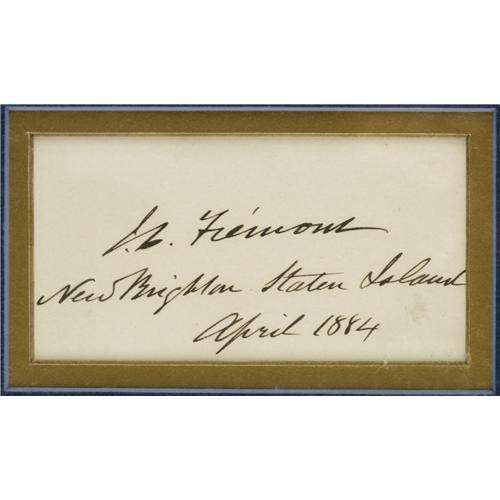 J.C. Frémont
New Brighton Staten Island
April 1884